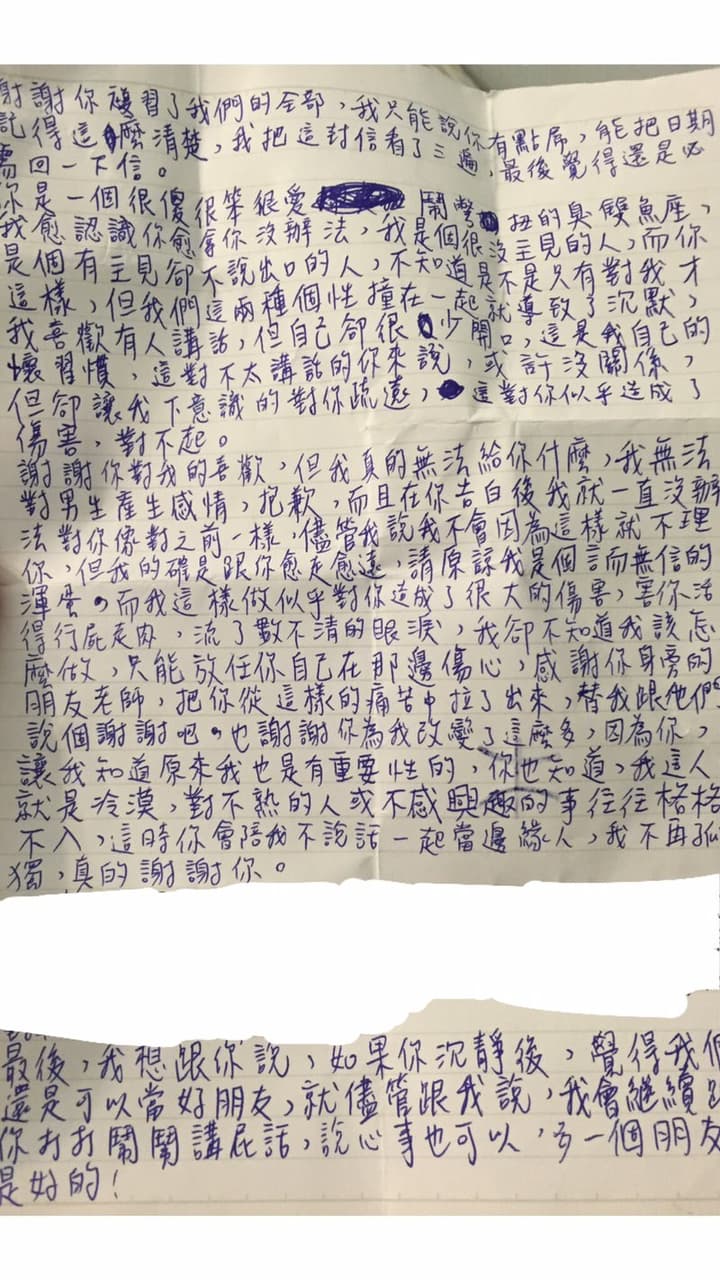 謝謝你複習了我們的全部，我只能說你有點屌，能把日期
記得這麼清楚，我把這封信看了三遍，最後覺得還是必
需回一下信。
你是一個很傻很笨很愛鬧彆扭的臭雙魚座，
我愈認識你愈拿你沒辦法，我是個很沒主見的人，而你
是個有主見卻不說出口的人，不知道是不是只有對我才
這樣，但我們這兩種個性撞在一起就導致了沉默，
我喜歡有人講話，但自己卻很少開口，這是我自己的
懷習慣，這對不太講話的你來說，或許沒關係，
但卻讓我下意識的對你疏遠，這對你似乎造成了
傷害，對不起。
謝謝你對我的喜歡，但我真的無法給你什麼，我無法
對男生產生感情，抱歉，而且在你告白後我就一直沒辦
法對你像對之前一樣，儘管我說我不會因為這樣就不理
你，但我的確是跟你愈走愈遠，請原諒我是個言而無信的
渾蛋。而我這樣做似乎對你造成了很大的傷害，害你活
得行屍走肉，流了數不清的眼淚，我卻不知道我該怎
麼做，只能放任你自己在那邊傷心，感謝你身旁的
朋友老師，把你從這樣的痛苦中拉了出來，替我跟他們
說個謝謝吧。也謝謝你為我改變了這麼多，因為你，
讓我知道原來我也是有重要性的，你也知道，我這人
就是冷漠，對不熟的人或不感興趣的事往往格格
不入，這時你會陪我不說話一起當邊緣人，我不再孤
獨，真的謝謝你。
最後，我想跟你說，如果你沉靜後，覺得我們
還是可以當好朋友，就儘管跟我說，我會繼續跟
你打打鬧鬧講屁話，說心事也可以，多一個朋友
是好的！